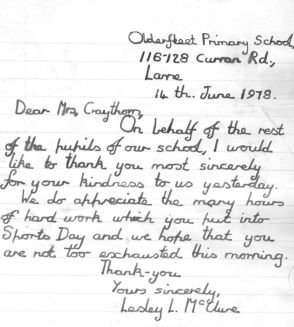 Olderfleet Primary School,
116-128 Curran Rd.,
Larne
14 th. June 1978.
Dear Mrs, Craythorn,
On behalf of the rest
of the pupils of our school, I would
like to thank you most sincerely
for your kindness to us yesterday.
We do appreciate the many hours
of hard work which you put into
Sports Day and we hope that you
are not too exhausted this morning.
Thank-you
Yours sincerely,
Lesley L. McClure.